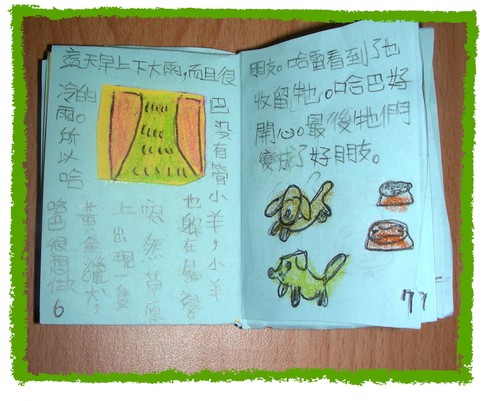 這天早上下大雨,而且很
冷的
雨。
所以
哈
巴沒有管小羊,小羊
也躲在
忽然草原
上出現一隻
黃金獵犬,
哈巴很想做
6
朋友。哈雷看到了也
收留牠。哈巴好
開心。最後牠們
變成了好朋友。
77